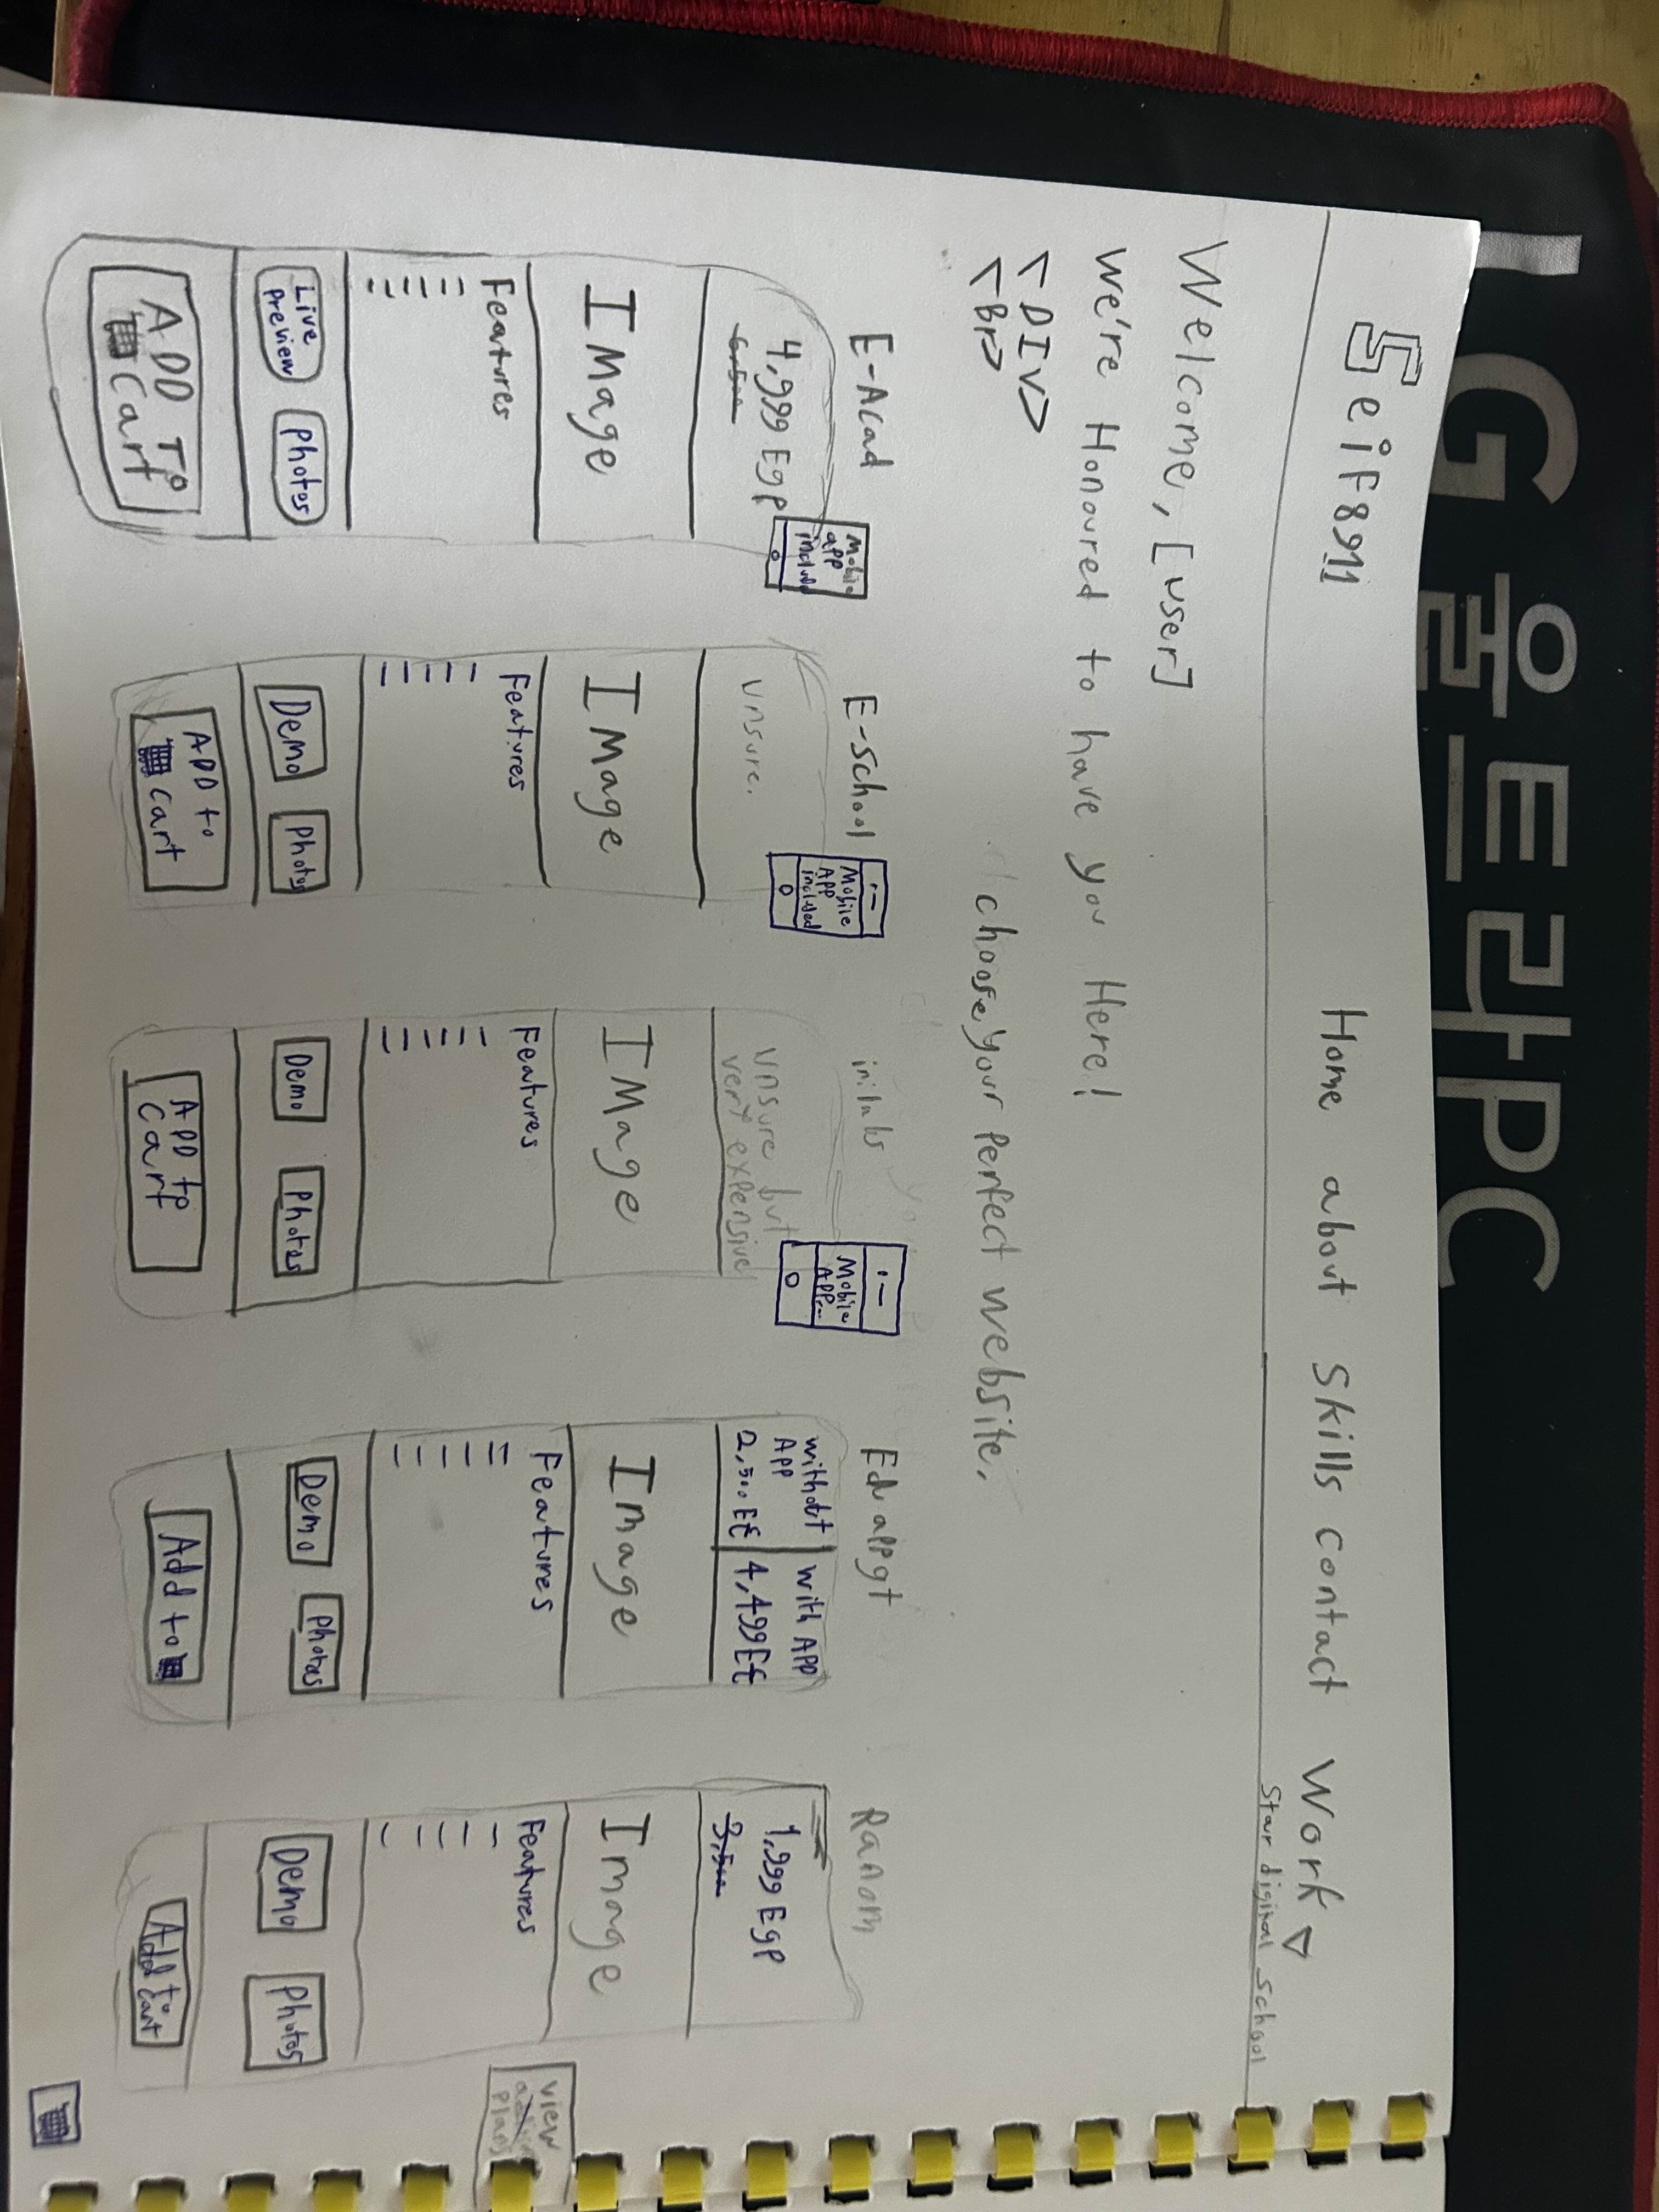 LG 울트라PC
Seif8911
Home about Skills Contact Work
Star digital school
Welcome, [user]
We're Honoured to have you Here!
<DIV>
<Br>
choose your Perfect website.
E-Acad
Mobile
app
include
4,999 Egp
6,500
IMage
Features
Live
Preview
Photos
ADD To
Cart
E-School
Mobile
APP
included
Unsure.
IMage
Features
Demo
Photos
ADD to
Cart
Mobile
APP...
Unsure but
very expensive
IMage
Features
Demo
Photos
ADD to
Cart
Edu appgt
without
APP
2,500 E£
with APP
4,499 E£
Image
Features
Demo
Photos
Add to
Ranom
1,999 Egp
3,500
Image
Features
Demo
Photos
Add to
Cart
view
Plans